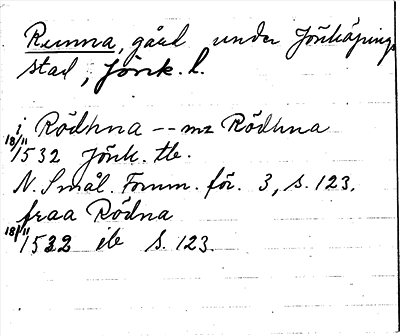 Runna, gård under Jönköpings
stad, Jönk. l.
i Rödhna -- mz Rödhna
18/11 1532 Jönk. tb.
N. Smål. Fornm. för. 3, s. 123.
fraa Rödna
18/11 1532 ib s. 123.